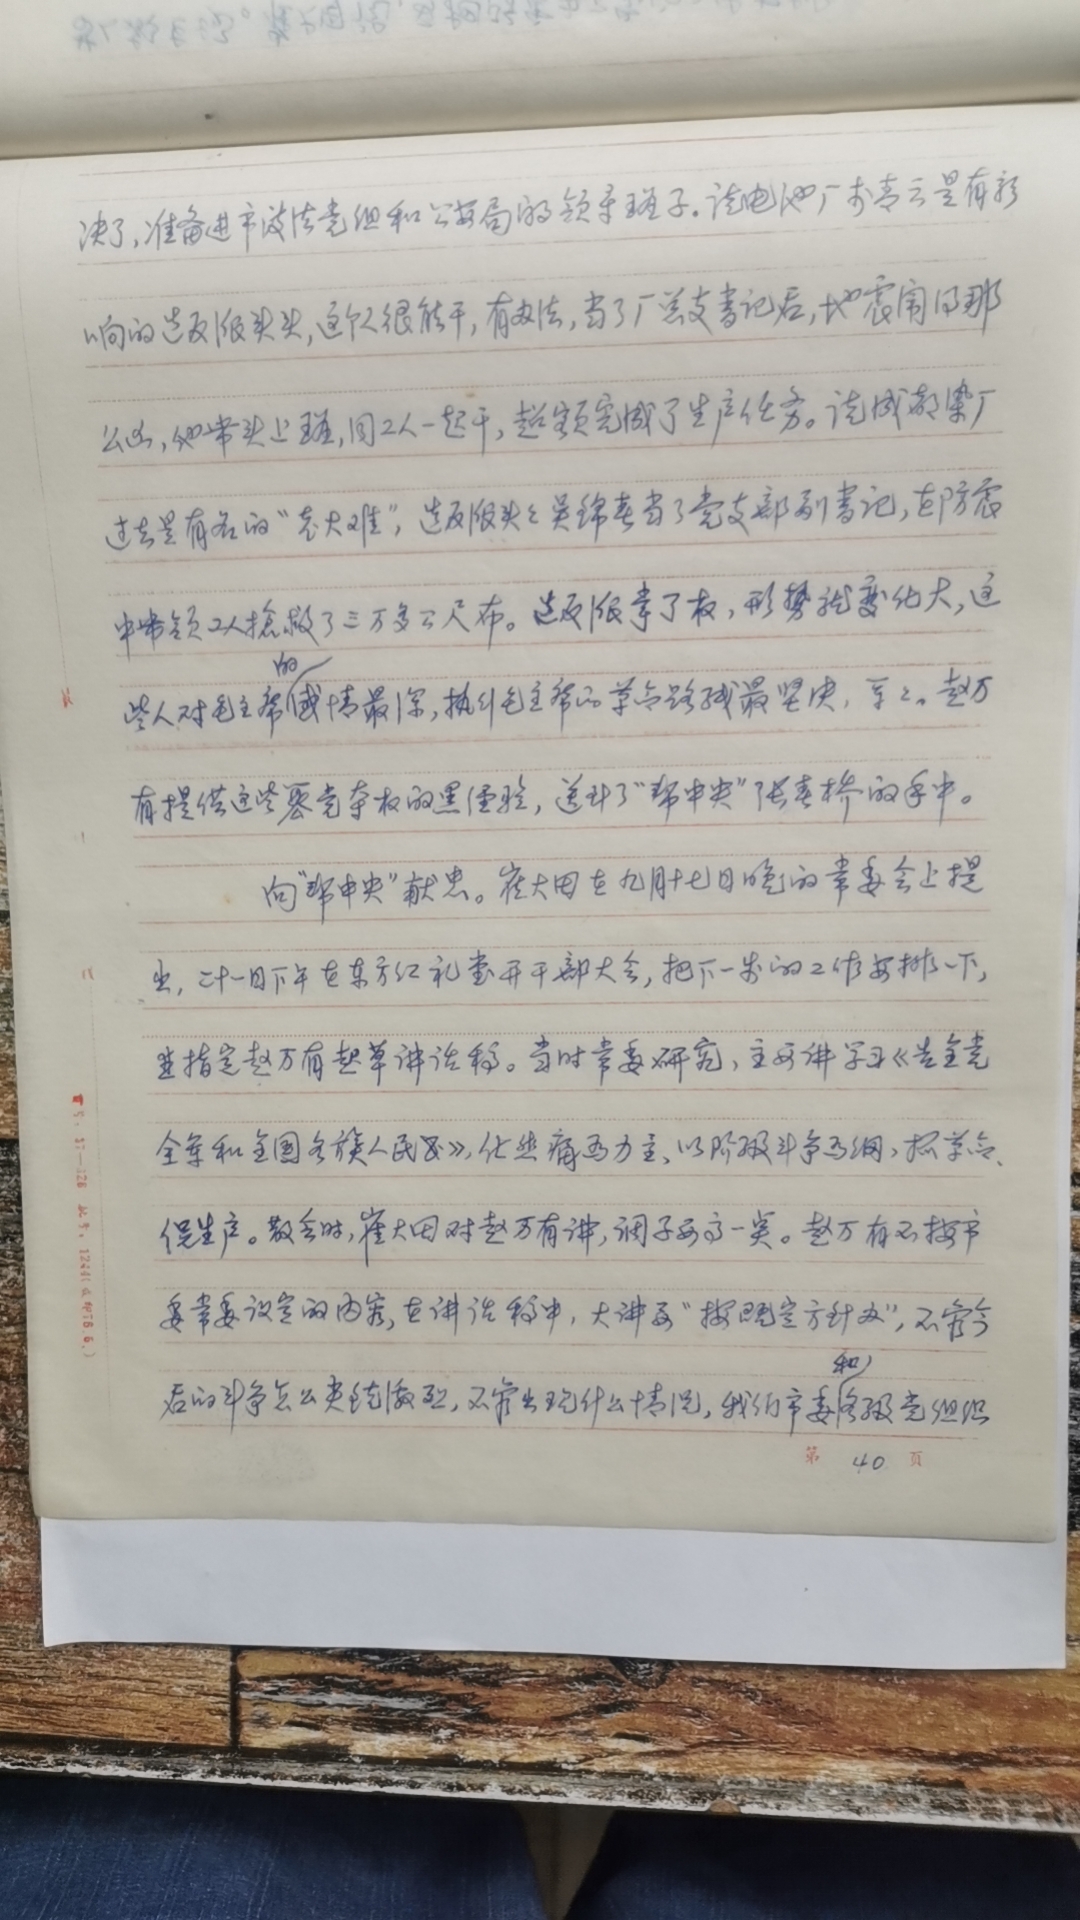 决了,准备进市政法党组和公安局的领导班子。说电池厂李青云是有影
响的造反派头头,这个人很能干,有办法,当了厂党支书记后,地震闹得那
么凶,他带头上班,同工人一起干,超额完成了生产任务。说成都染厂
过去是有名的“老大难”,造反派头々吴锦春当了党支部副书记,在防震
中带领工人抢救了三万多公尺布。造反派掌了权,形势就变化大,这
些人对毛主席的感情最深,执行毛主席的革命路线最坚决,等々。赵万
有提供这些篡党夺权的黑经验,送到了“帮中央”张春桥的手中。
向“帮中央”献忠。崔大田在九月十七日晚的常委会上提
出,二十一日下午在东方红礼堂开干部大会,把下一步的工作安排一下,
并指定赵万有起草讲话稿。当时常委研究,主要讲学习《告全党
全军和全国各族人民书》,化悲痛为力量,以阶级斗争为纲,抓革命、
促生产。散会时,崔大田对赵万有讲,调子要高一点。赵万有不按市
委常委议定的内容,在讲话稿中,大讲要“按既定方针办”,不管今
后的斗争怎么尖锐激烈,不管出现什么情况,我们市委和各级党组织
第 40 页